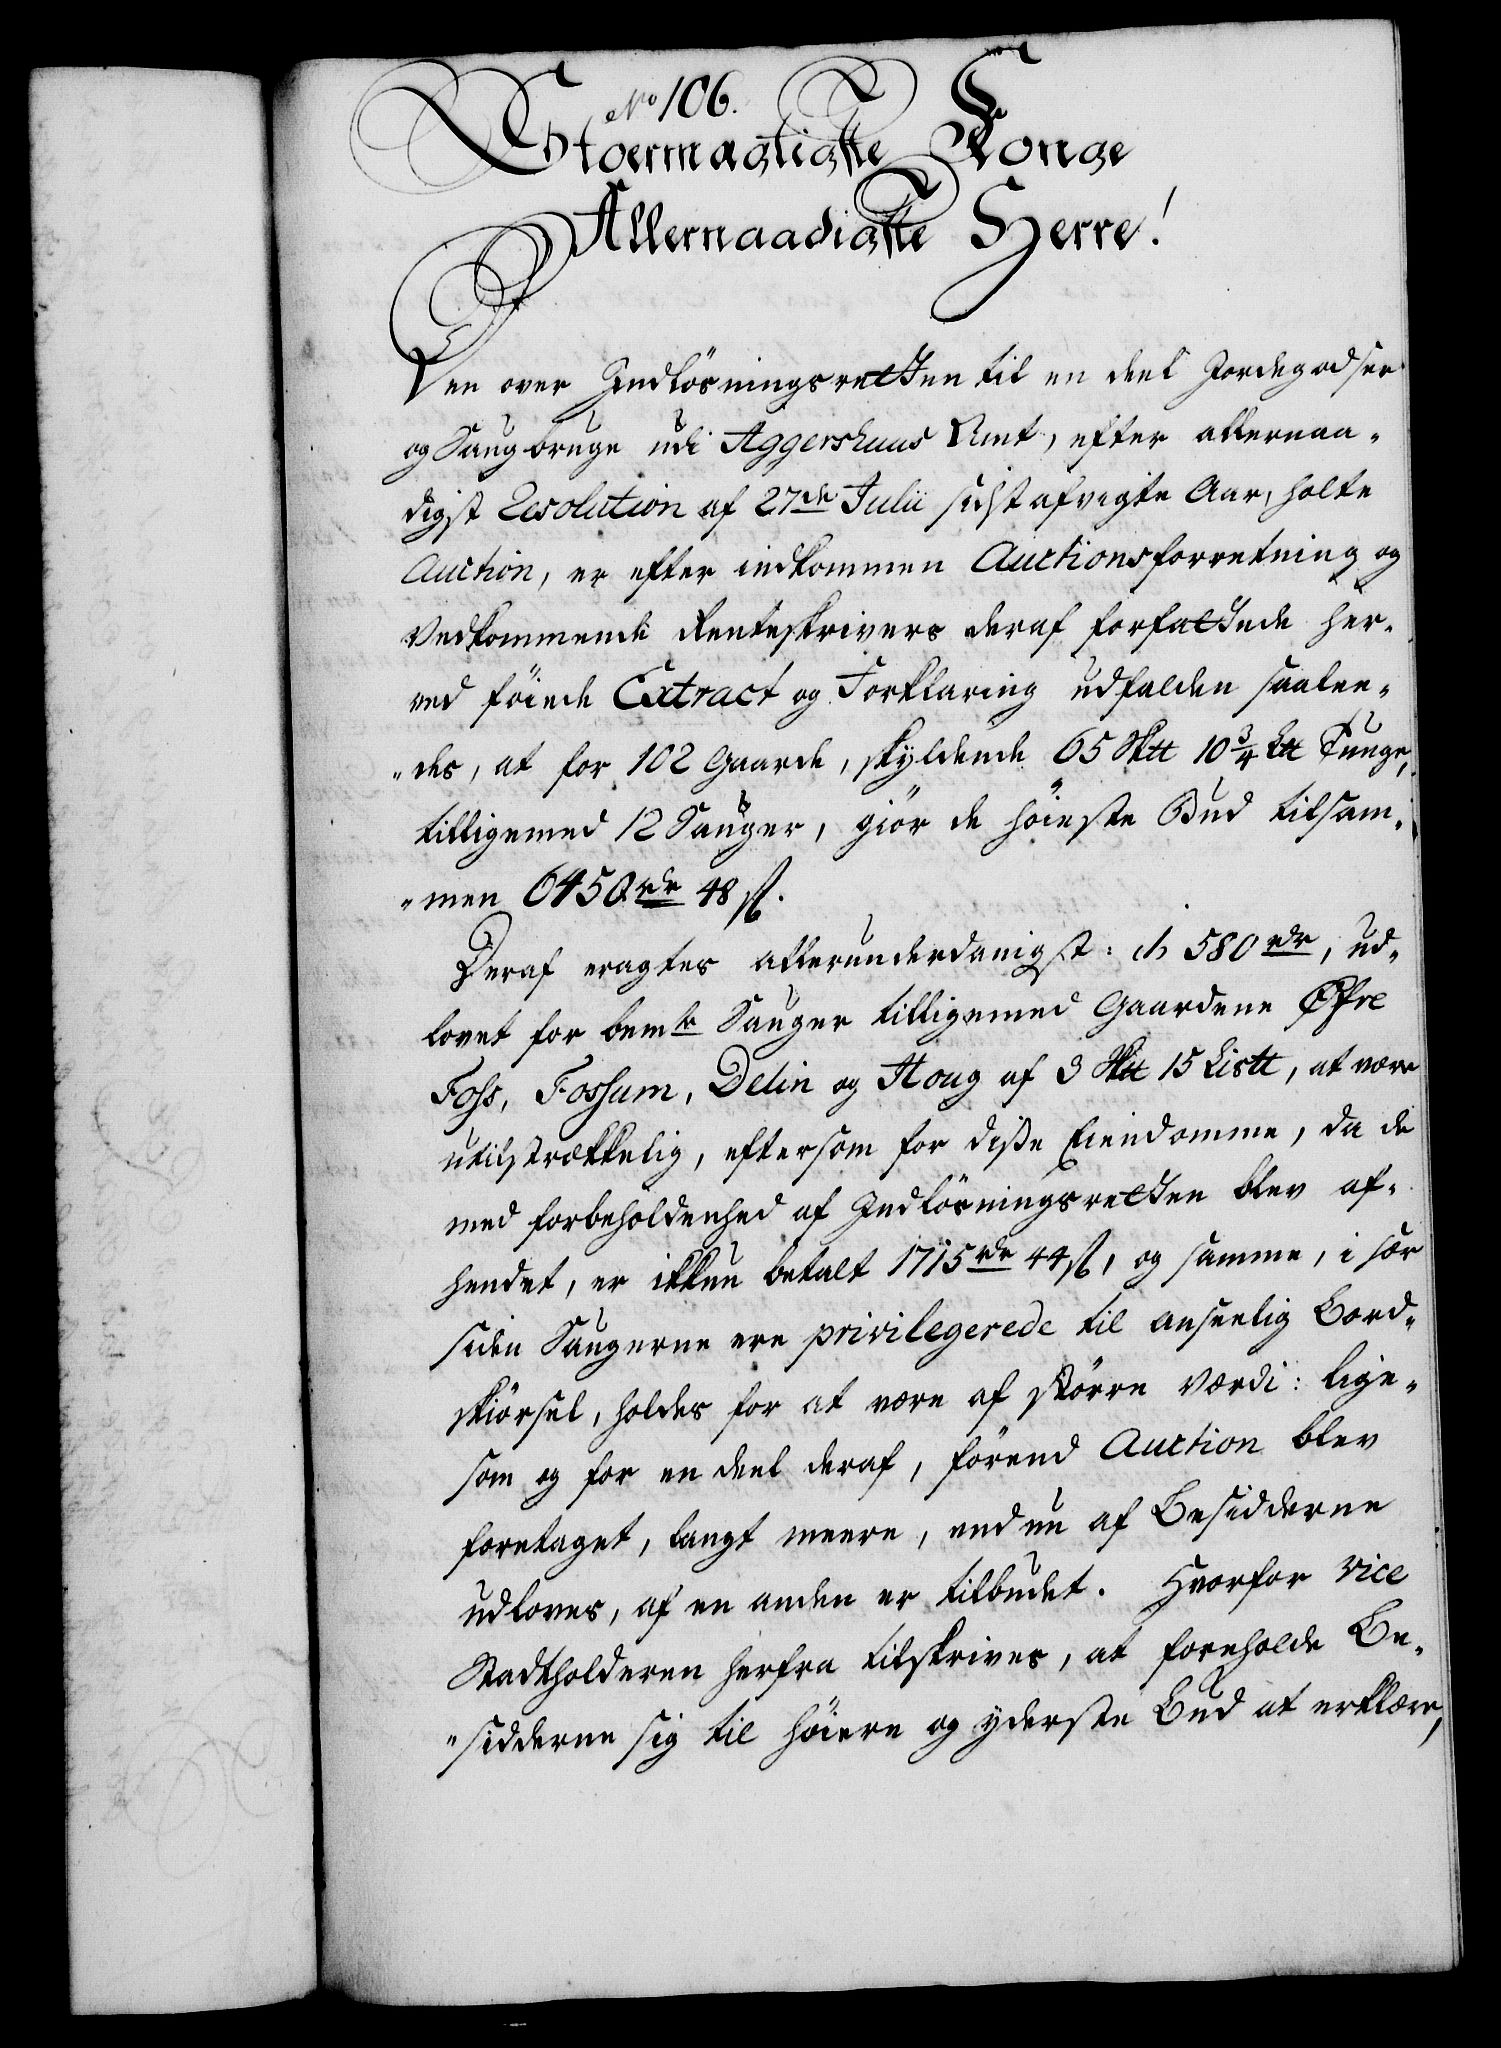 No 106.
Stoermægtigste Konge
Allernaadigste Herre!
Den over Indløsningsretten til en deel Jordegodser
og Saugbruge udi Aggershuus Amt, efter allernaa-
digst Resolution af 27de Julii sidstafvigte Aar, holte
Auction, er efter indkommen Auctionsforretning og
Vedkommende Renteskrivers deraf forfattede her-
ved føiede Extract og Forklaring udfalden saalee-
"des, at for 102 Gaarde, skyldende 65 Sktt 10 3/4 Ltt Tunge,
tilligemed 12 Sauger, giør de høieste Bud tilsam-
"men 6450 rdr 48 ß.
Deraf eragtes allerunderdanigst: 1) 580 rdr, ud-
lovet for bemte Sauger tilligemed Gaardene Øfre
Foss, Fossum, Delin og Houg af 3 Sktt 15 Listt, at være
utilstrækkelig, eftersom for disse Eiendomme, da de
med forbeholdenhed af Indløsningsretten blev af-
hendet, er ikkun betalt 1715 rdr 44 ß, og samme, i sær
siden Saugerne ere privilegerede til anseelig Bord-
skiørsel, holdes for at være af større Værdi: lige-
som og for en deel deraf, førend Auction blev
foretaget, langt meere, end nu af Besidderne
udloves, af en anden er tilbudet. Hvorfor Vice
Stadtholderen herfra tilskrives, at foreholde Be-
"sidderne sig til høiere og yderste Bud at erklære,